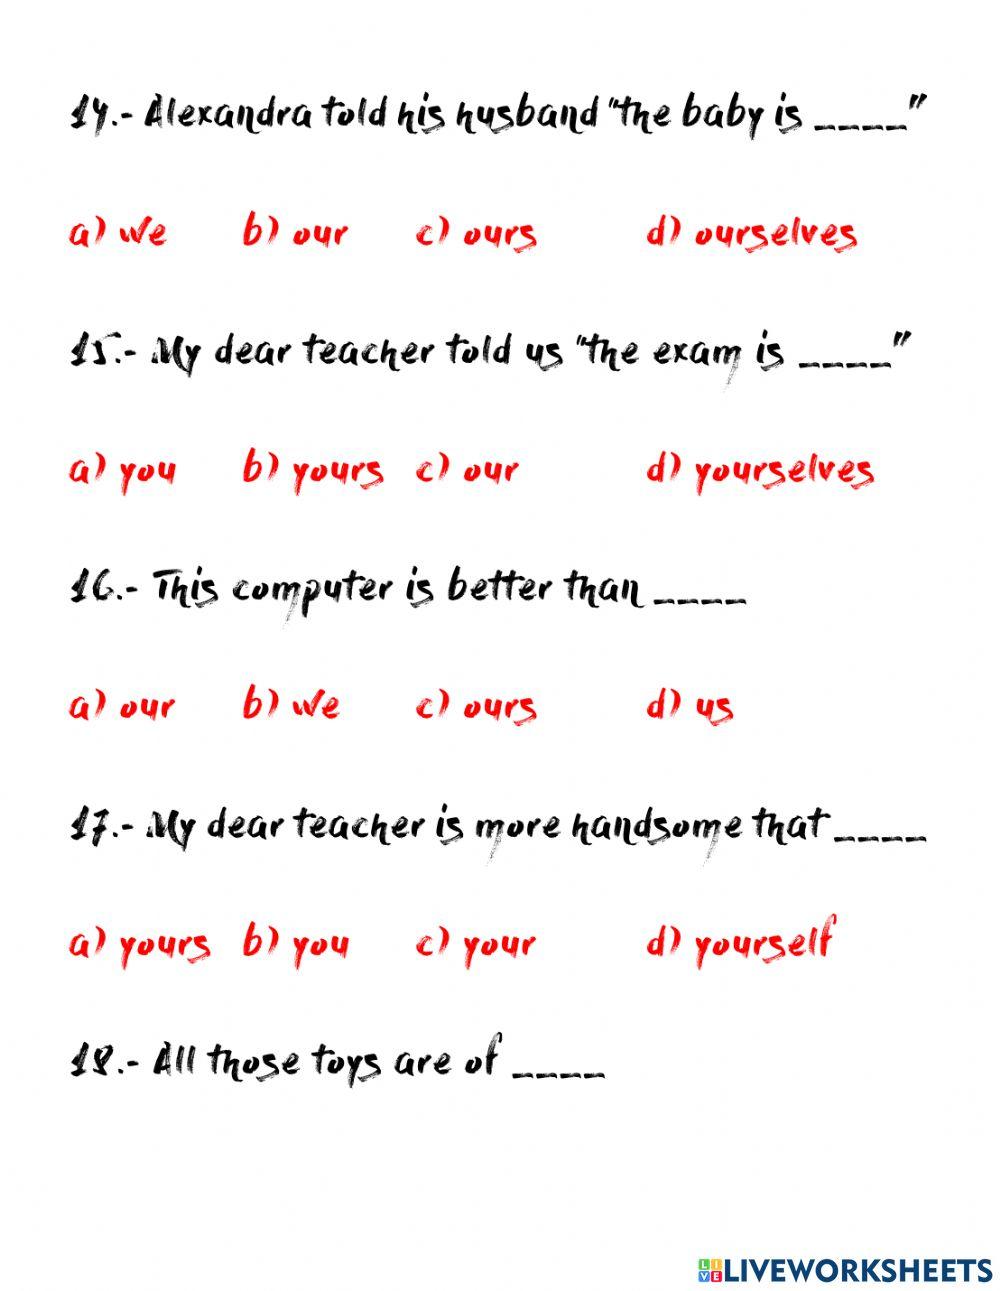 14.- Alexandra told his husband "the baby is ____"
a) we b) our c) ours d) ourselves
15.- My dear teacher told us "the exam is ____"
a) you b) yours c) our d) yourselves
16.- This computer is better than ____
a) our b) we c) ours d) us
17.- My dear teacher is more handsome that ____
a) yours b) you c) your d) yourself
18.- All those toys are of ____
LIVE LIVEWORKSHEETS